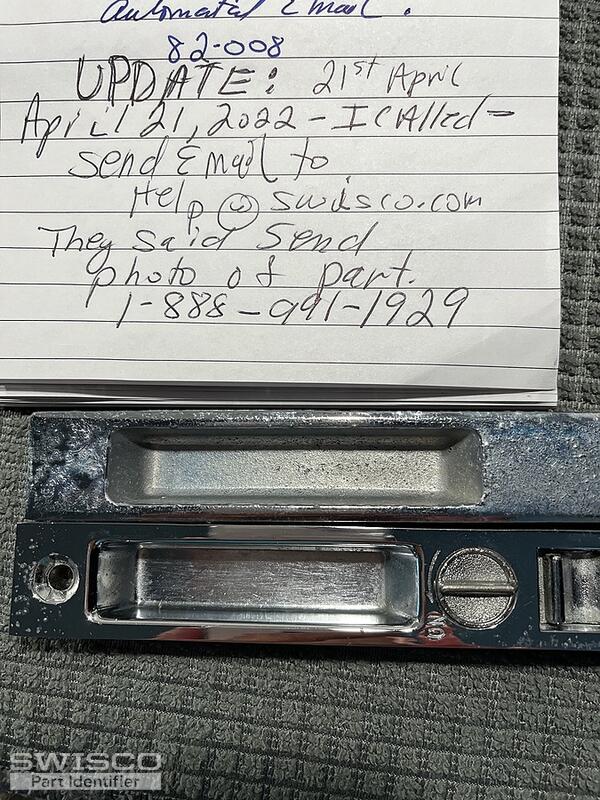 Automated Email.
82-008
UPDATE: 21st April
April 21, 2022 - I CAlled -
Send Email to
Help@swisco.com
They said Send
photo of part.
1-888-991-1929
SWISCO
Part Identifier